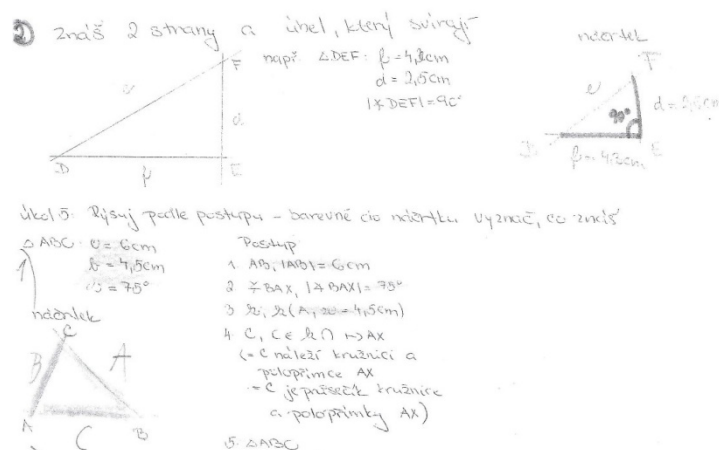 2) znáš 2 strany a úhel, který svírají
např. △DEF: f = 4,2cm
d = 2,5cm
|∢DEF| = 90°
F
e
d
D
f
E
náčrtek
F
e
90°
d = 2,5cm
D
f = 4,2cm
E
úkol 5: Rýsuj podle postupu – barevně do náčrtku vyznač, co znáš
△ABC: c = 6cm
b = 4,5cm
= 75°
náčrtek
C
B
A
A
C
B
Postup
1. AB, |AB| = 6cm
2. ∢BAX, |∢BAX| = 75°
3. k; k(A, r = 4,5cm)
4. C, C ∈ k ∩ ↦AX
(= C náleží kružnici a
polopřímce AX
= C je průsečík kružnice
a polopřímky AX)
5. △ABC